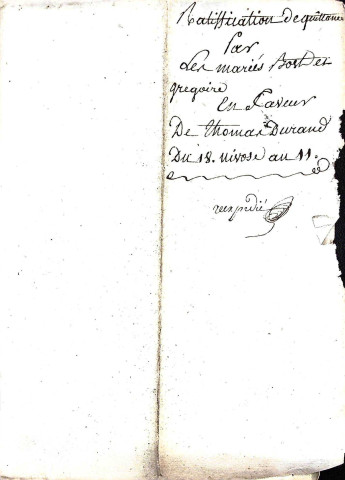 Ratiffication de quittance
par
Les mariés Bost et
gregoire
En faveur
De thomas Durand
Du 18. nivose an 11.
rexpedié